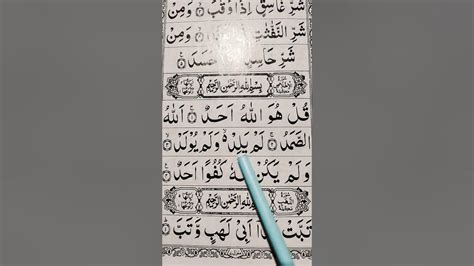 شَرِّ غَاسِقٍ اِذَا وَقَبَ ۙ وَمِنْ
شَرِّ النَّفّٰثٰتِ الْعُقَدِ ۙ وَمِنْ
شَرِّ حَاسِدٍ حَسَدَ
بِسْمِ اللّٰهِ الرَّحْمٰنِ الرَّحِيْمِ
قُلْ هُوَ اللّٰهُ اَحَدٌ ۚ اَللّٰهُ
الصَّمَدُ ۚ لَمْ يَلِدْ ۙ وَلَمْ يُوْلَدْ ۙ
وَلَمْ يَكُنْ لَّهٗ كُفُوًا اَحَدٌ
بِسْمِ اللّٰهِ الرَّحْمٰنِ الرَّحِيْمِ
تَبَّتْ اَبِيْ لَهَبٍ وَّتَبَّ